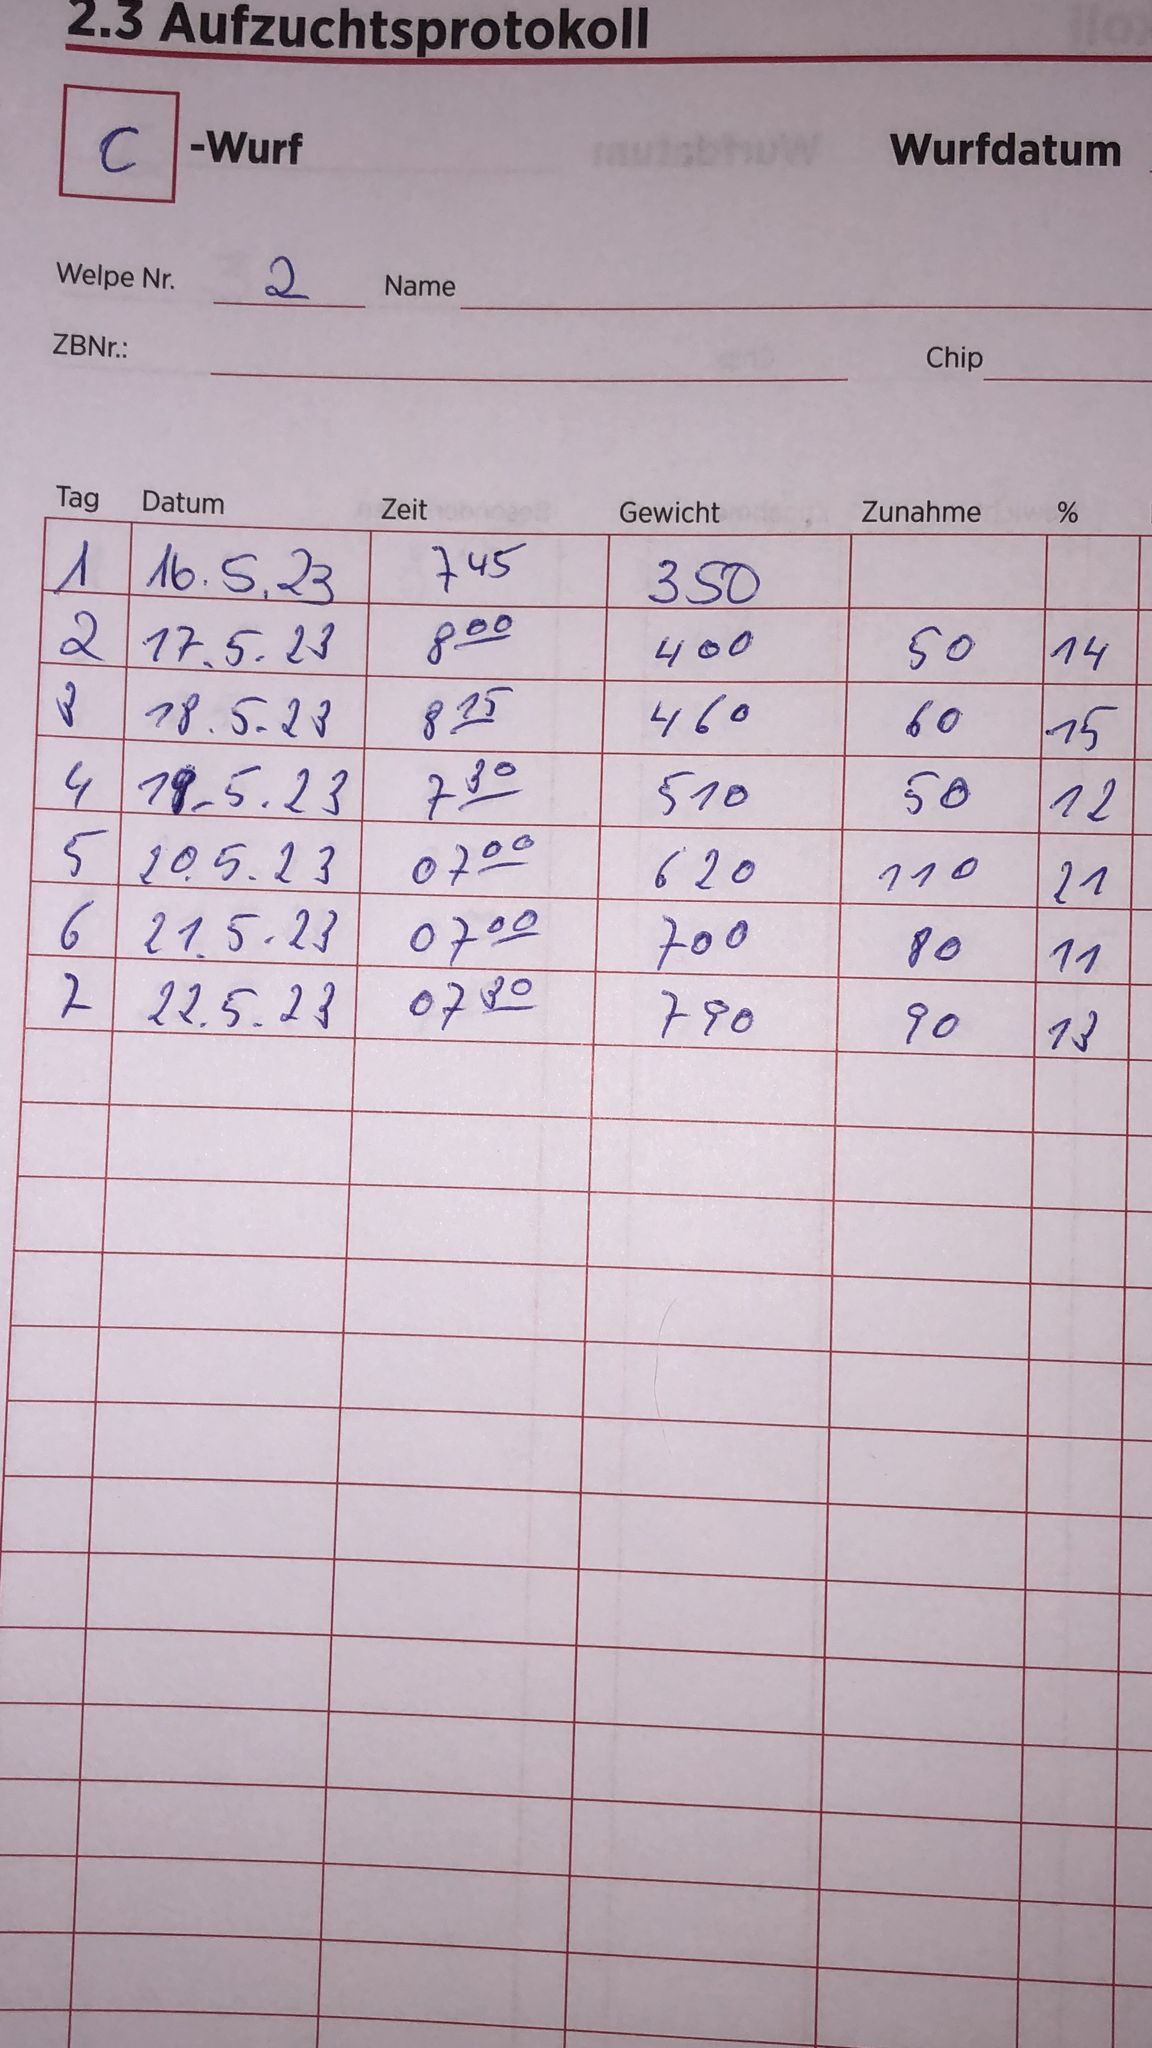 2.3 Aufzuchtsprotokoll
C -Wurf Wurfdatum
Welpe Nr. 2 Name
ZBNr.: Chip
Tag Datum Zeit Gewicht Zunahme %
1 16.5.23 7 45 350
2 17.5.23 8 00 400 50 14
3 18.5.23 8 15 460 60 15
4 19.5.23 7 30 510 50 12
5 20.5.23 07 00 620 110 21
6 21.5.23 07 00 700 80 11
7 22.5.23 07 30 790 90 13